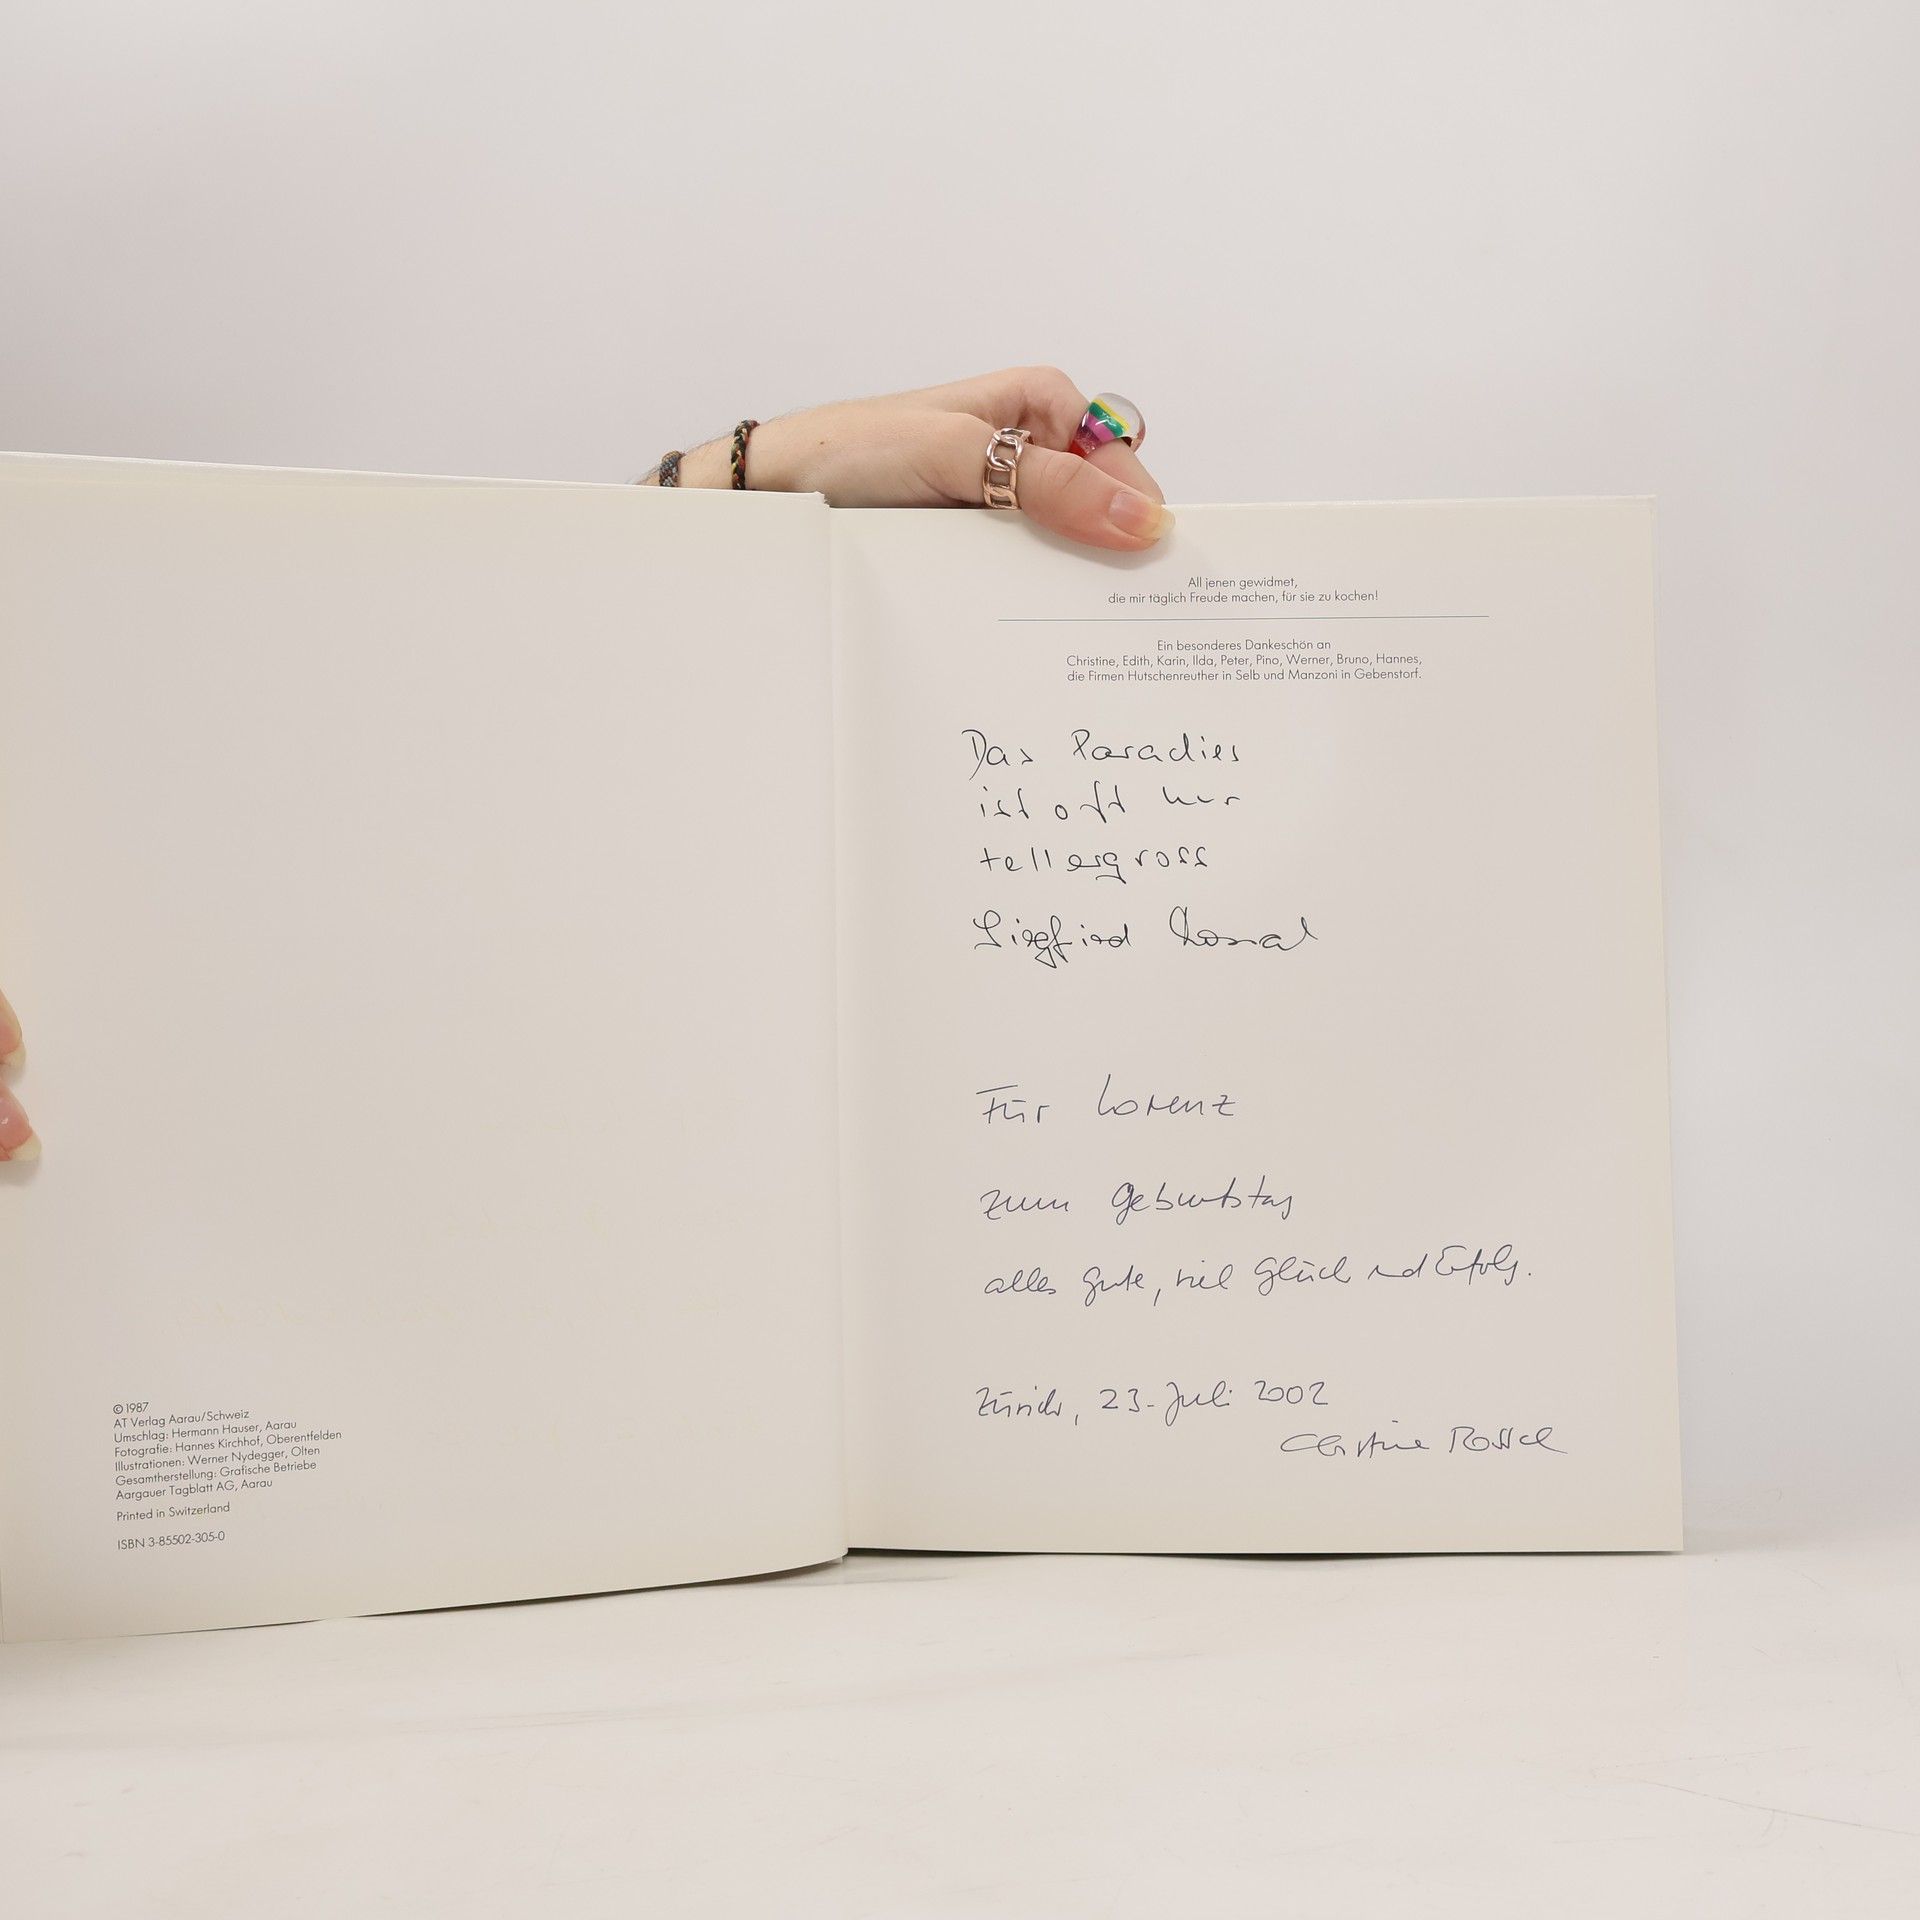 © 1987
AT Verlag Aarau/Schweiz
Umschlag: Hermann Hauser, Aarau
Fotografie: Hannes Kirchhof, Oberentfelden
Illustrationen: Werner Nydegger, Olten
Gesamtherstellung: Grafische Betriebe
Aargauer Tagblatt AG, Aarau
Printed in Switzerland
ISBN 3-85502-305-0
All jenen gewidmet,
die mir täglich Freude machen, für sie zu kochen!
Ein besonderes Dankeschön an
Christine, Edith, Karin, Ilda, Peter, Pino, Werner, Bruno, Hannes,
die Firmen Hutschenreuther in Selb und Manzoni in Gebenstorf.
Das Paradies
ist oft nur
tellergross
Siegfried Rossal
Für Lorenz
zum Geburtstag
alles Gute, viel Glück und Erfolg.
Zürich, 23. Juli 2002
Christine Rossal